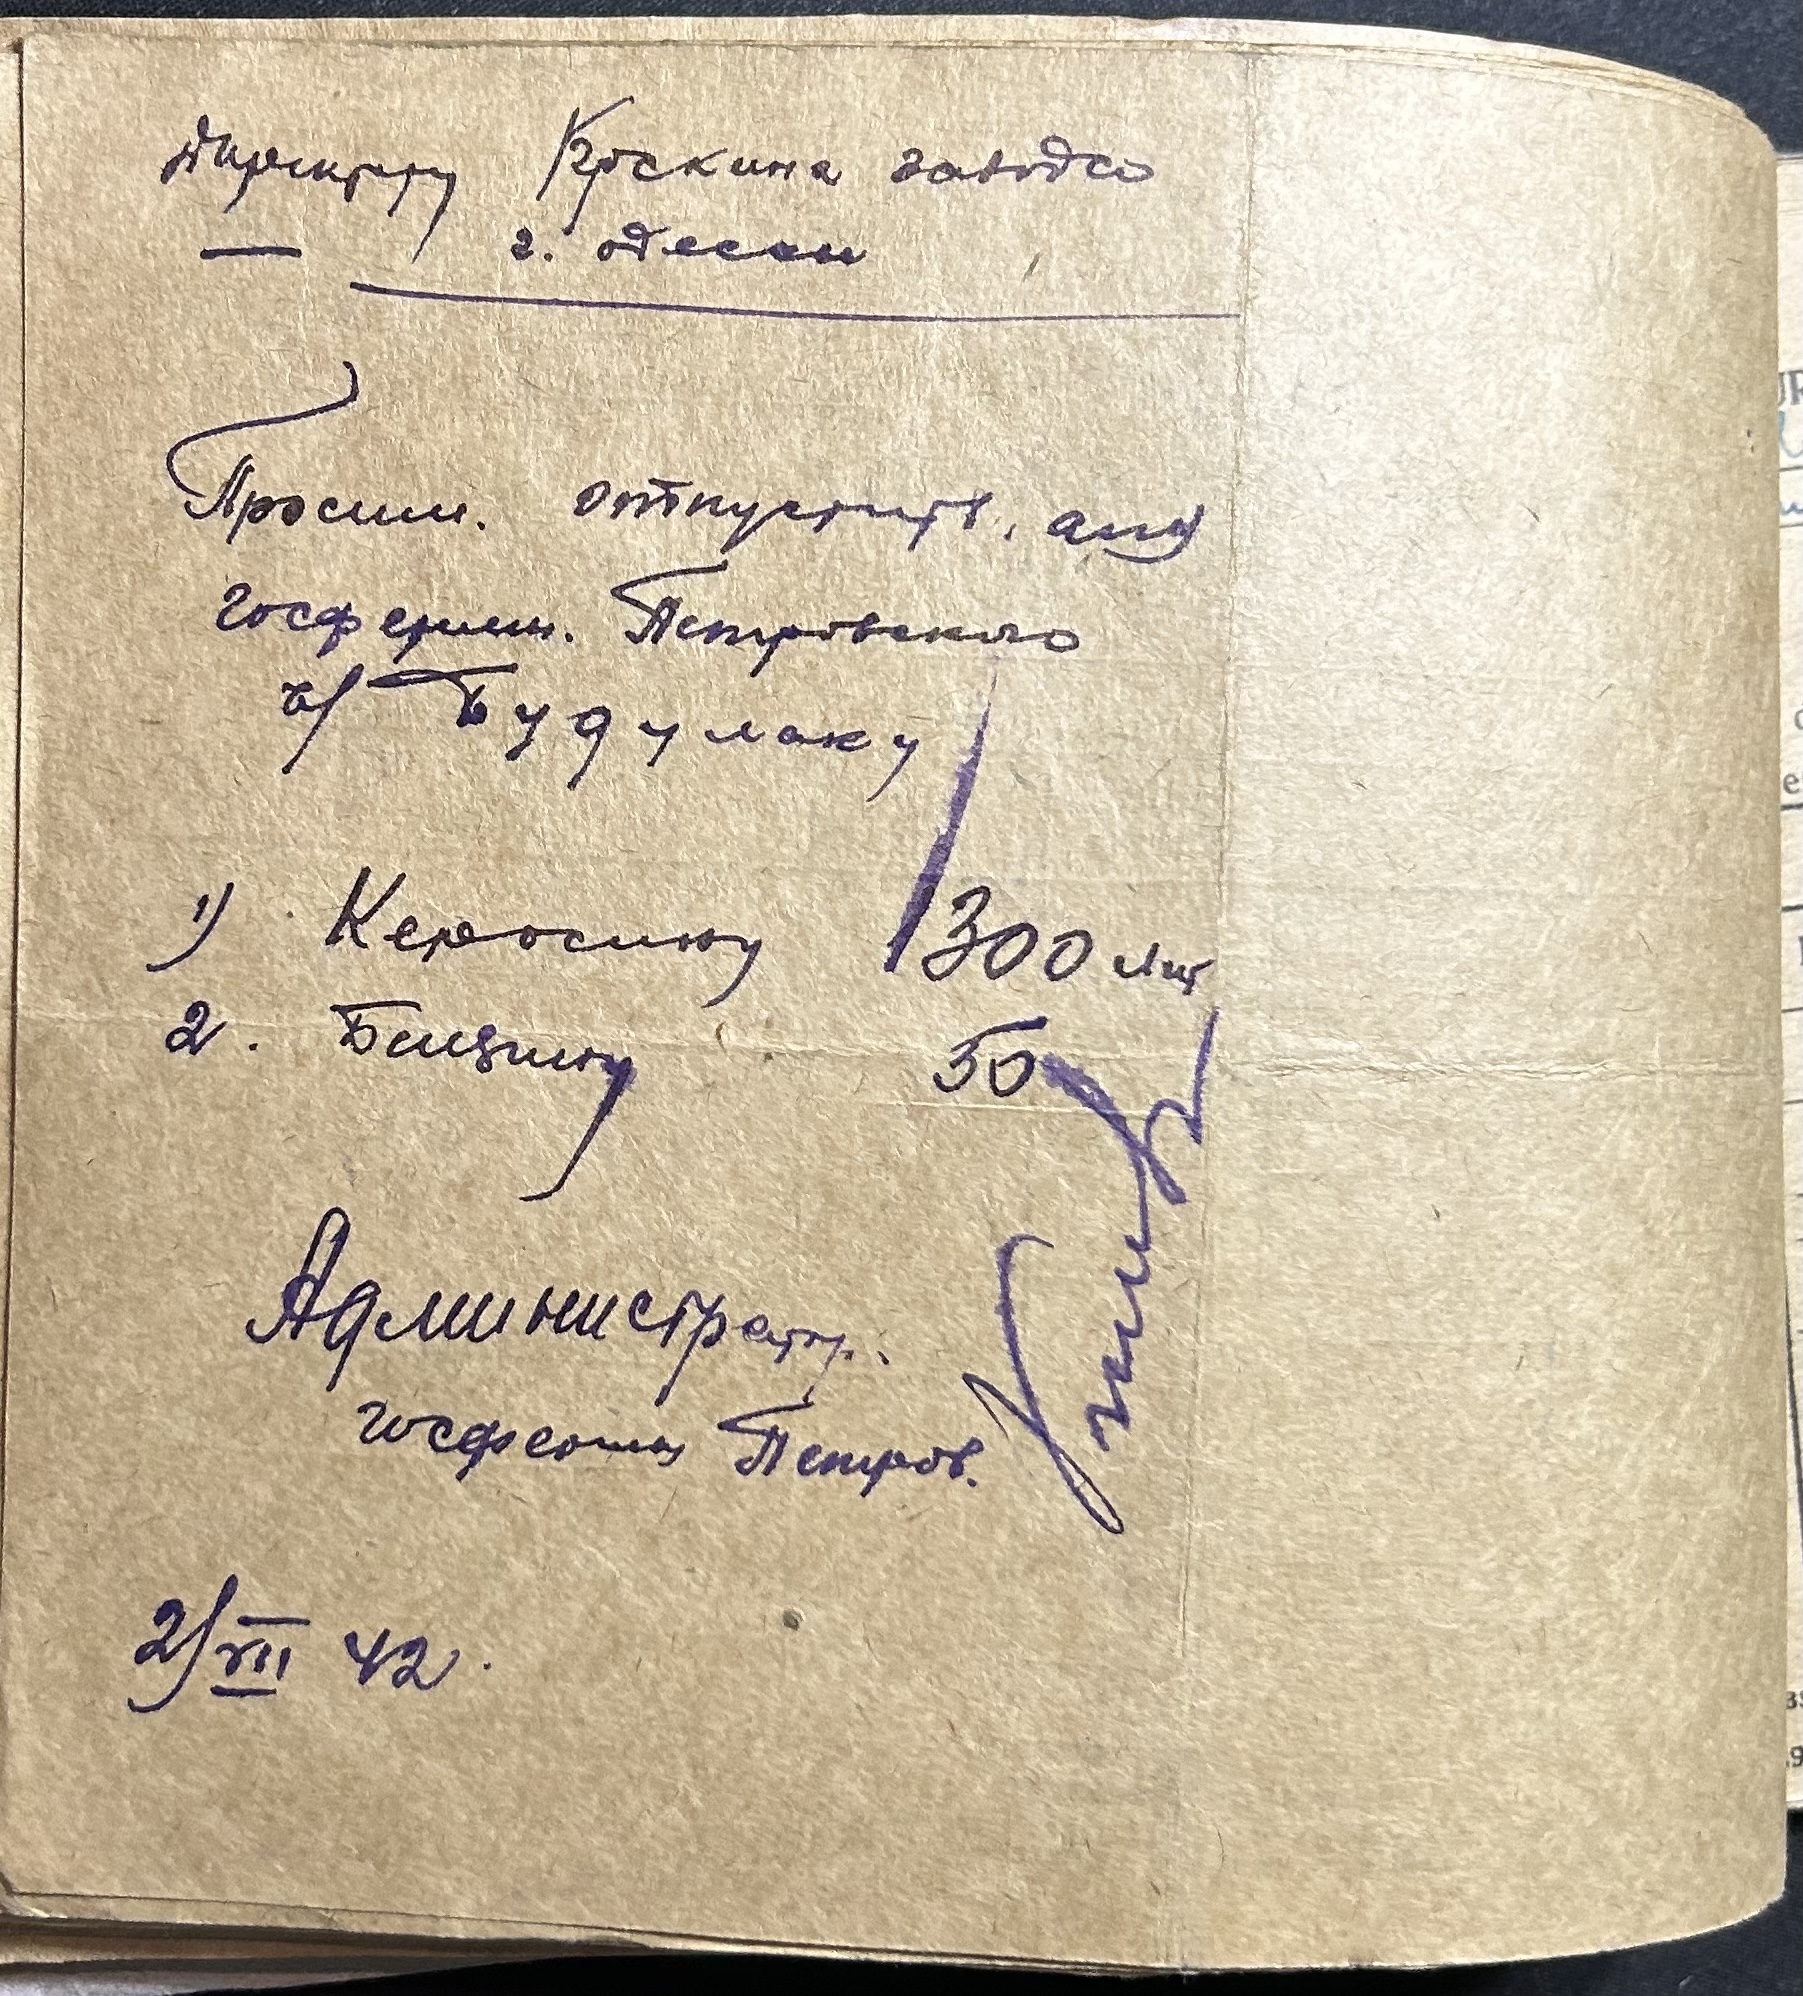 Директору Крекина заводсо
г. Одессы
Просим. отпустить, для
госфермы. Петровского
ч/ Будулаку
1) Керосину 1300 лит
2. Бензину 50
Администратр.
госфермы Петров.
2/VII 42.
UR